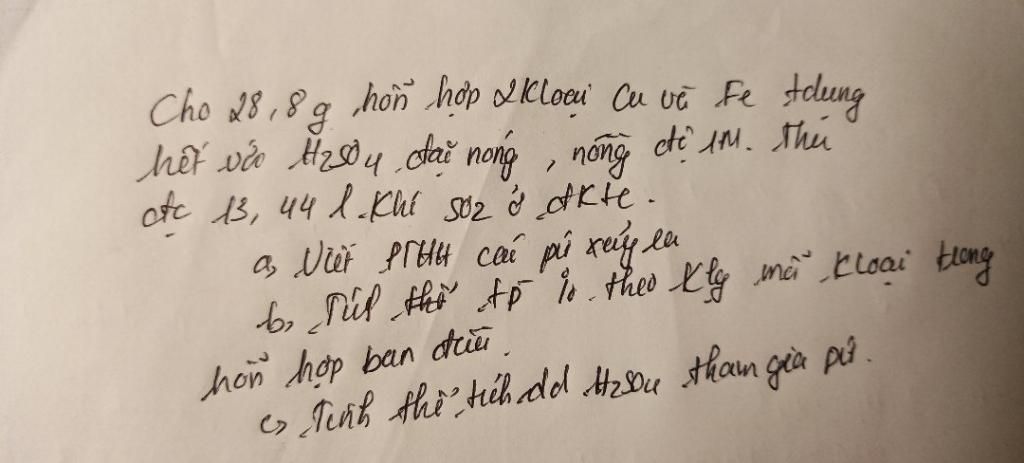 Cho 28,8g hỗn hợp 2 Kloại Cu và Fe tdụng
hết với H2SO4 đặc nóng, nồng độ 1M. Thu
đc 13,44 l Khí SO2 ở đKtc.
a, Viết PTHH các pứ xảy ra
b, Tính tp % theo Klg mỗi Kloại trong
hỗn hợp ban đầu.
c, Tính thể tích dd H2SO4 tham gia pứ.